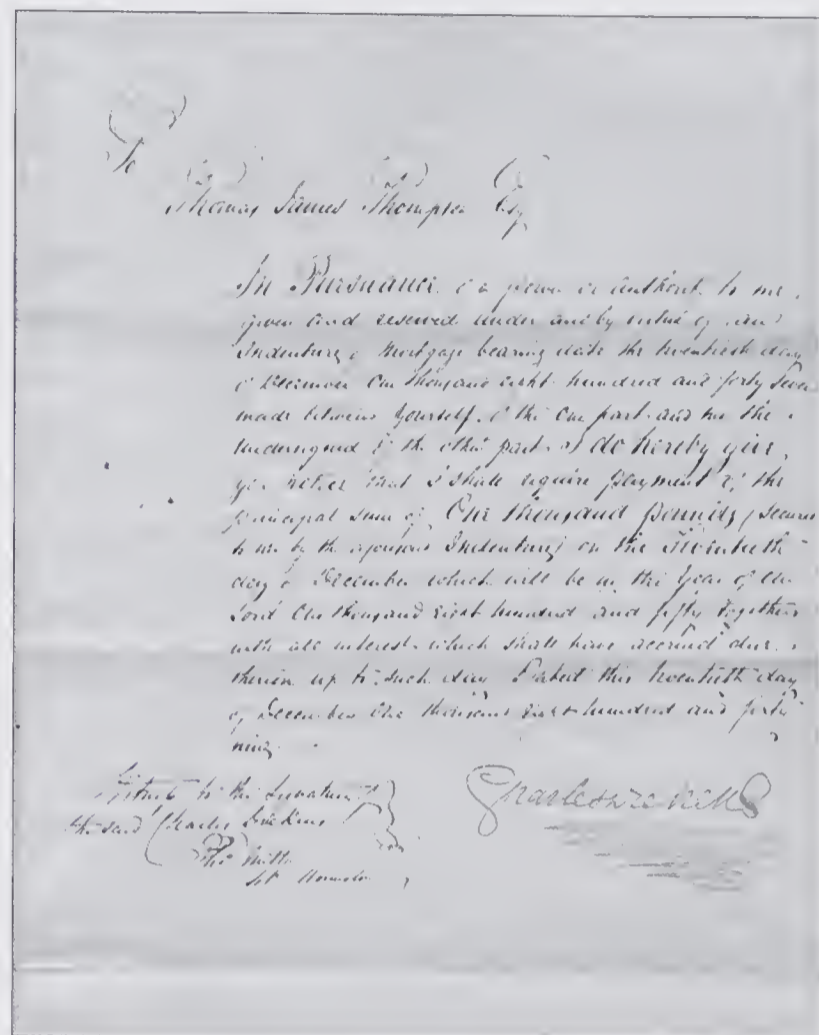 To
Thomas James Thompson Esq
In Pursuance of a power or authority to me
given and reserved under and by virtue of an
Indenture of Mortgage bearing date the twentieth day
of December One thousand eight hundred and forty seven
made between Yourself of the one part and me the
undersigned of the other part I do hereby give
you notice that I shall require payment of the
principal sum of One thousand pounds (secured
to me by the aforesaid Indenture) on the Twentieth
day of December which will be in the Year of our
Lord One thousand eight hundred and fifty together
with all interest which shall have accrued due
therein up to such day Dated this twentieth day
of December One thousand eight hundred and forty
nine
Witness to the Signature of
the said Charles Dickens
Charles Dickens